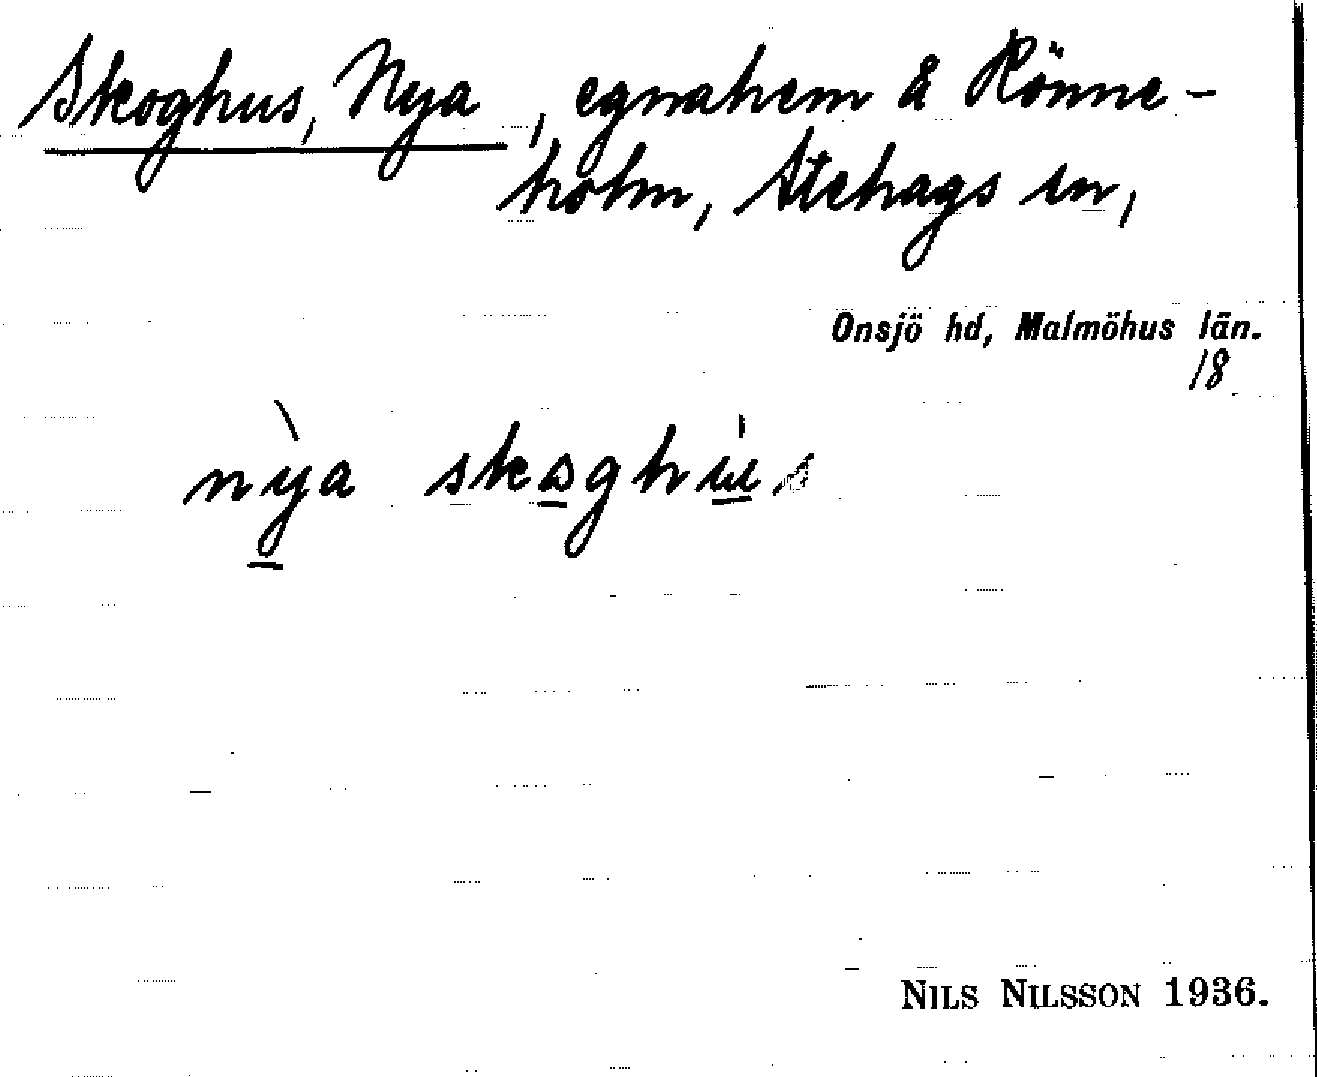 Skoghus, Nya, egnahem å Rönne-
holm, Stehags sn,
Onsjö hd, Malmöhus län.
18
nỳa skoghu̍s
NILS NILSSON 1936.